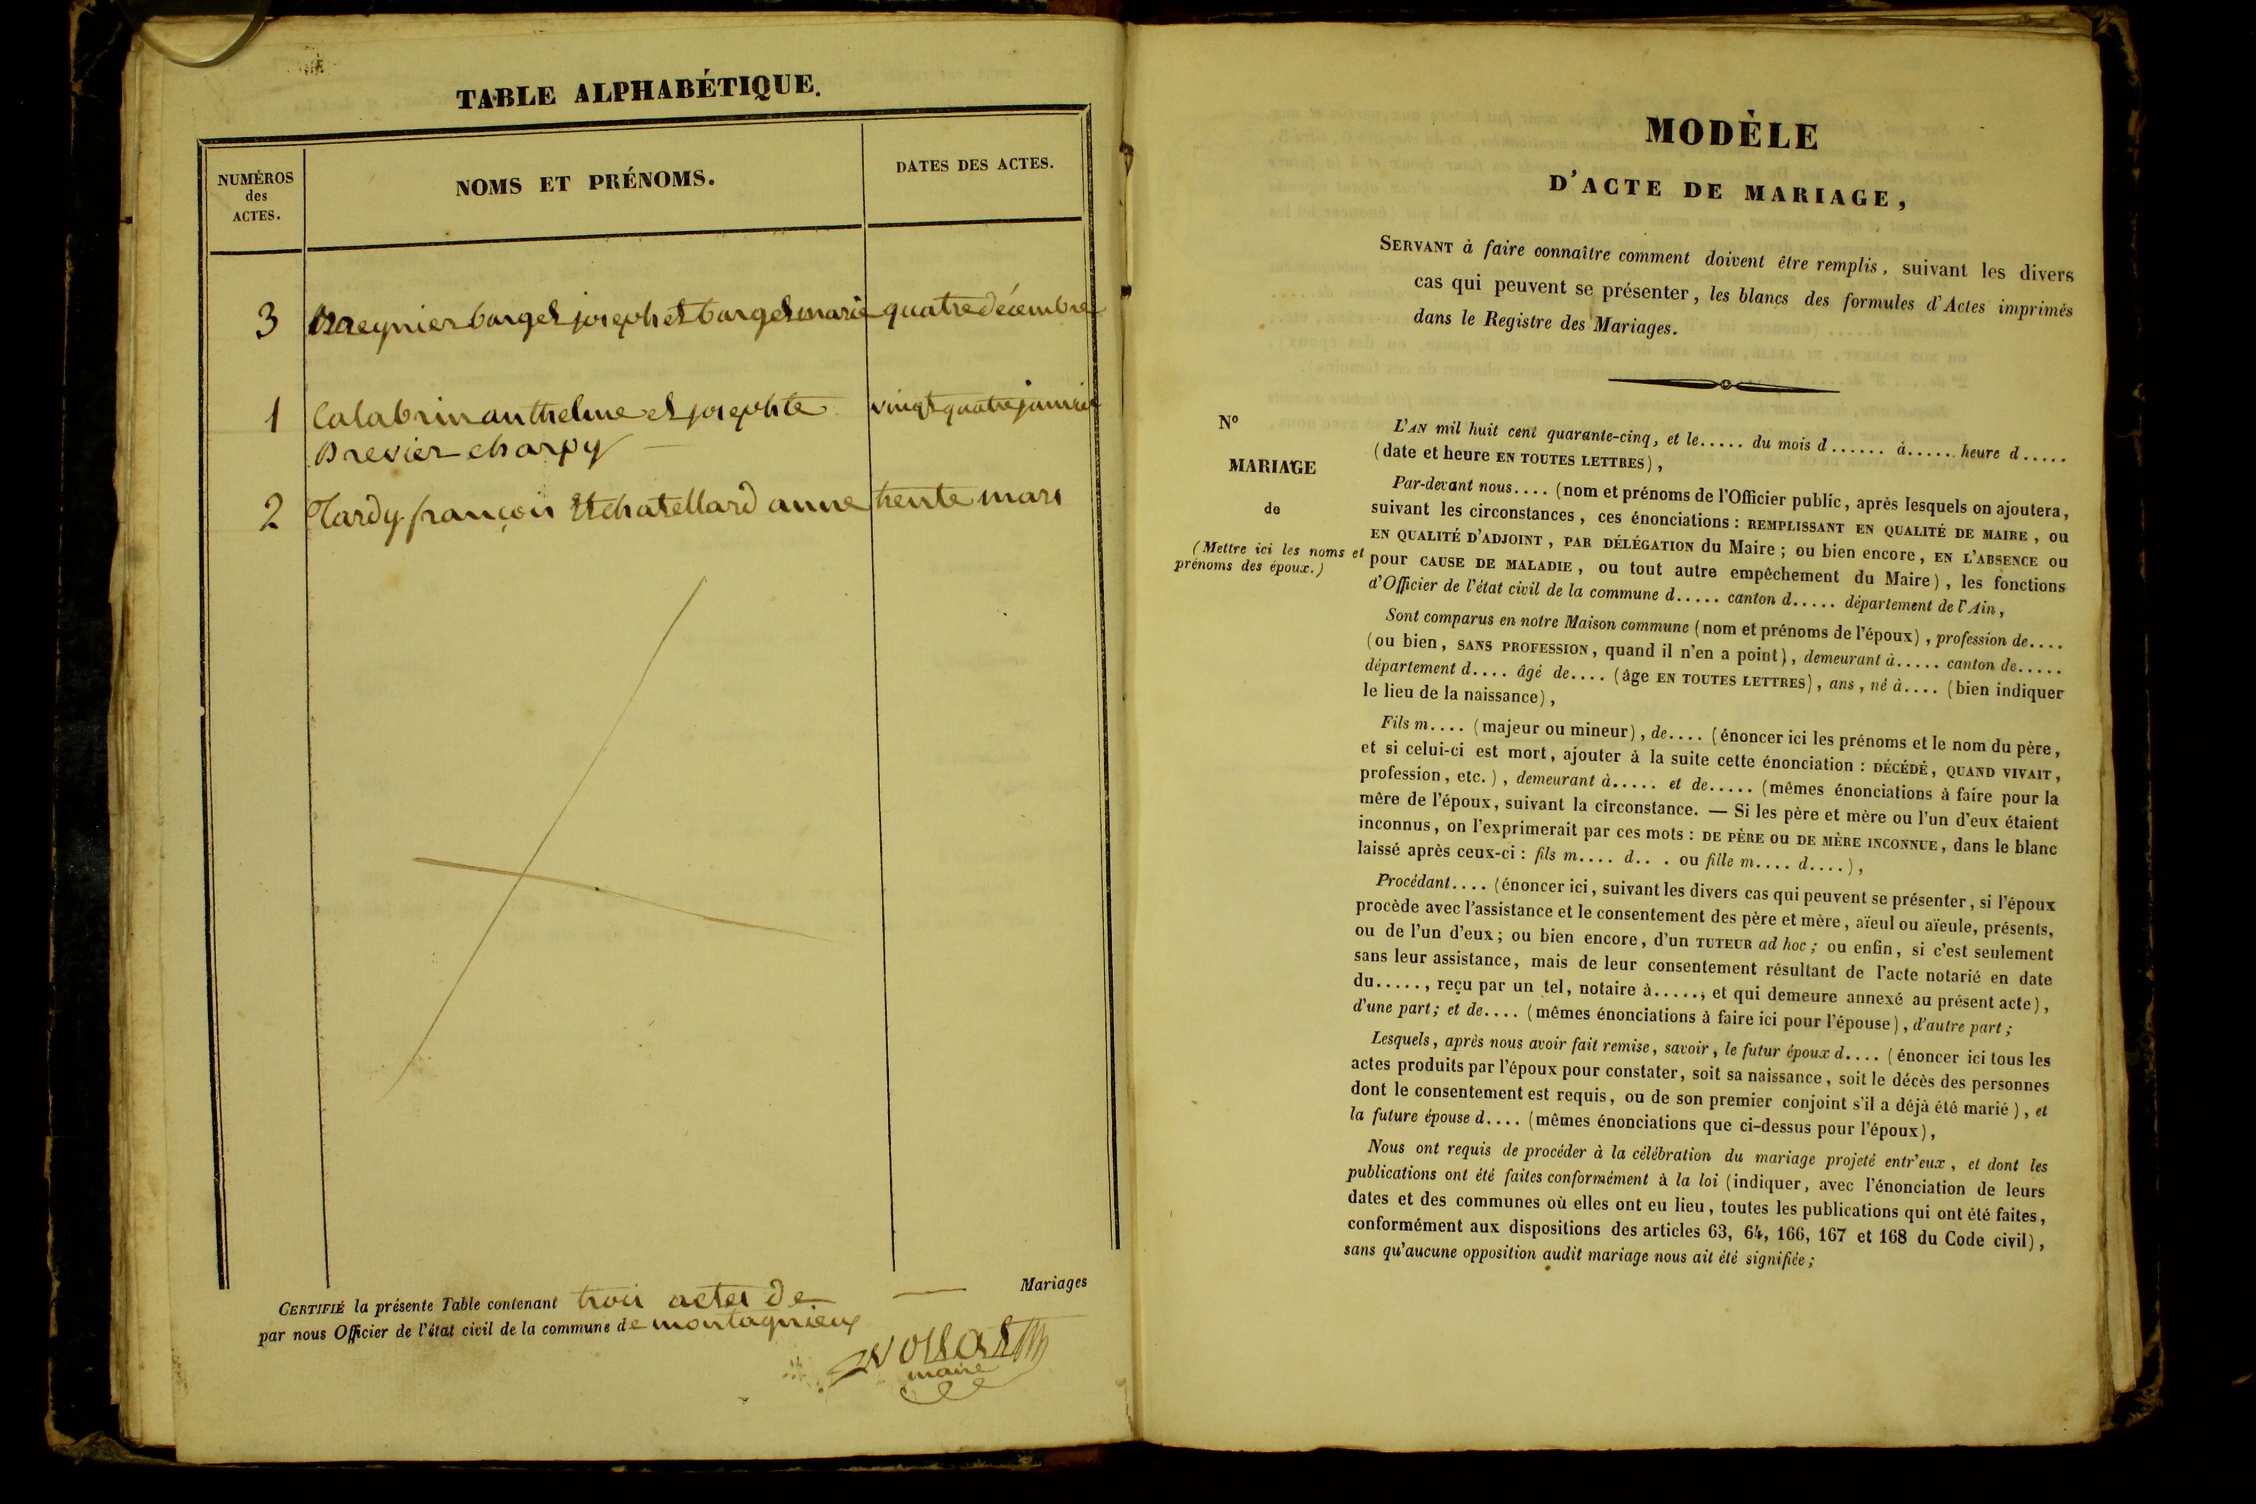 TABLE ALPHABÉTIQUE.
NUMÉROS
des
ACTES.
NOMS ET PRÉNOMS.
DATES DES ACTES.
3 joseph et barget marie quatre décembre
1 Calabrin anthelme et josephte vingt quatre janvier
Brevier charpy
2 Tardy françois Et chatellard anne trente mars
CERTIFIÉ la présente Table contenant trois actes de — Mariages
par nous Officier de l'état civil de la commune de montagnieux
maire
MODÈLE
D'ACTE DE MARIAGE,
SERVANT à faire connaître comment doivent être remplis, suivant les divers
cas qui peuvent se présenter, les blancs des formules d'Actes imprimés
dans le Registre des Mariages.
N°
MARIAGE
de
(Mettre ici les noms et
prénoms des époux.)
L'AN mil huit cent quarante-cinq, et le..... du mois d...... à..... heure d.....
(date et heure EN TOUTES LETTRES),
Par-devant nous.... (nom et prénoms de l'Officier public, après lesquels on ajoutera,
suivant les circonstances, ces énonciations : REMPLISSANT EN QUALITÉ DE MAIRE, ou
EN QUALITÉ D'ADJOINT, PAR DÉLÉGATION du Maire; ou bien encore, EN L'ABSENCE ou
pour CAUSE DE MALADIE, ou tout autre empêchement du Maire), les fonctions
d'Officier de l'état civil de la commune d..... canton d..... département de l'Ain,
Sont comparus en notre Maison commune (nom et prénoms de l'époux), profession de....
(ou bien, SANS PROFESSION, quand il n'en a point), demeurant à..... canton de.....
département d.... âgé de.... (âge EN TOUTES LETTRES), ans, né à.... (bien indiquer
le lieu de la naissance),
Fils m.... (majeur ou mineur), de.... (énoncer ici les prénoms et le nom du père,
et si celui-ci est mort, ajouter à la suite cette énonciation : DÉCÉDÉ, QUAND VIVAIT,
profession, etc.), demeurant à..... et de..... (mêmes énonciations à faire pour la
mère de l'époux, suivant la circonstance. — Si les père et mère ou l'un d'eux étaient
inconnus, on l'exprimerait par ces mots : DE PÈRE OU DE MÈRE INCONNUE, dans le blanc
laissé après ceux-ci : fils m.... d.. . ou fille m.... d....),
Procédant.... (énoncer ici, suivant les divers cas qui peuvent se présenter, si l'époux
procède avec l'assistance et le consentement des père et mère, aïeul ou aïeule, présents,
ou de l'un d'eux; ou bien encore, d'un TUTEUR ad hoc; ou enfin, si c'est seulement
sans leur assistance, mais de leur consentement résultant de l'acte notarié en date
du....., reçu par un tel, notaire à....., et qui demeure annexé au présent acte),
d'une part; et de.... (mêmes énonciations à faire ici pour l'épouse), d'autre part;
Lesquels, après nous avoir fait remise, savoir, le futur époux d.... (énoncer ici tous les
actes produits par l'époux pour constater, soit sa naissance, soit le décès des personnes
dont le consentement est requis, ou de son premier conjoint s'il a déjà été marié), et
la future épouse d.... (mêmes énonciations que ci-dessus pour l'époux),
Nous ont requis de procéder à la célébration du mariage projeté entr'eux, et dont les
publications ont été faites conformément à la loi (indiquer, avec l'énonciation de leurs
dates et des communes où elles ont eu lieu, toutes les publications qui ont été faites,
conformément aux dispositions des articles 63, 64, 166, 167 et 168 du Code civil),
sans qu'aucune opposition audit mariage nous ait été signifiée;